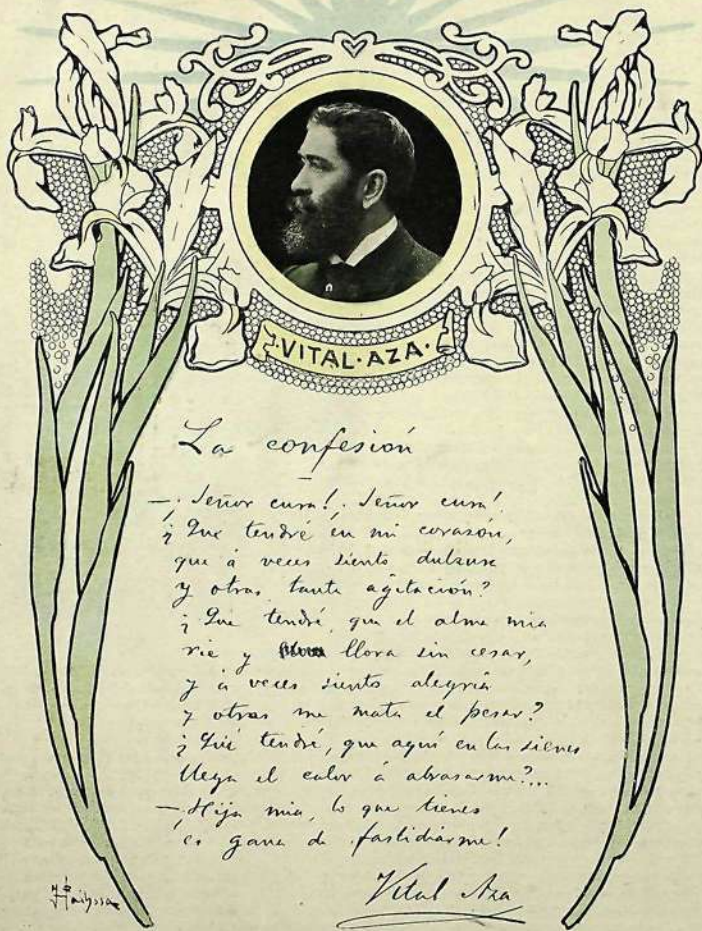 ·VITAL·AZA·
La confesión
—¡Señor cura! ¡Señor cura!
¿Que tendré en mi corazón,
que á veces siento dulzura
y otras tanta agitación?
¿Que tendré, que el alma mia
rie y llora sin cesar,
y á veces siento alegria
y otras me mata el pesar?
¿Qué tendré, que aquí en las sienes
llega el calor á abrasarme?...
—¡Hija mia, lo que tienes
es gana de fastidiarme!
Vital Aza